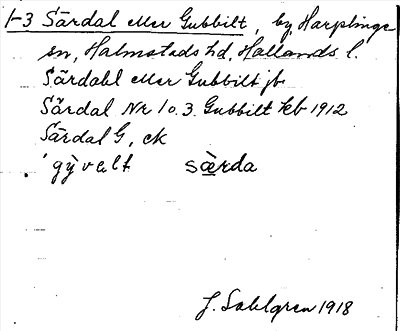 1-3 Särdal eller Gubbilt, by, Harplinge
sn, Halmstads hd, Hallands l.
Särdahl eller Gubbilt jb
Särdal Nr 1 o. 3. Gubbilt kb 1912
Särdal G, ck
gỳvalt sæ̀rda
J. Sahlgren 1918